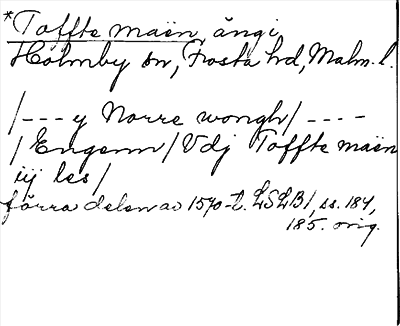 *Toffte maën, ängi
Holmby sn, Frosta hd, Malm. l.
/--- y Norre wongh/ ----
/Engenn/ Vdj Toffte maën
iij les/
förra delen av 1570-t. LSLB1, ss. 184,
185. orig.